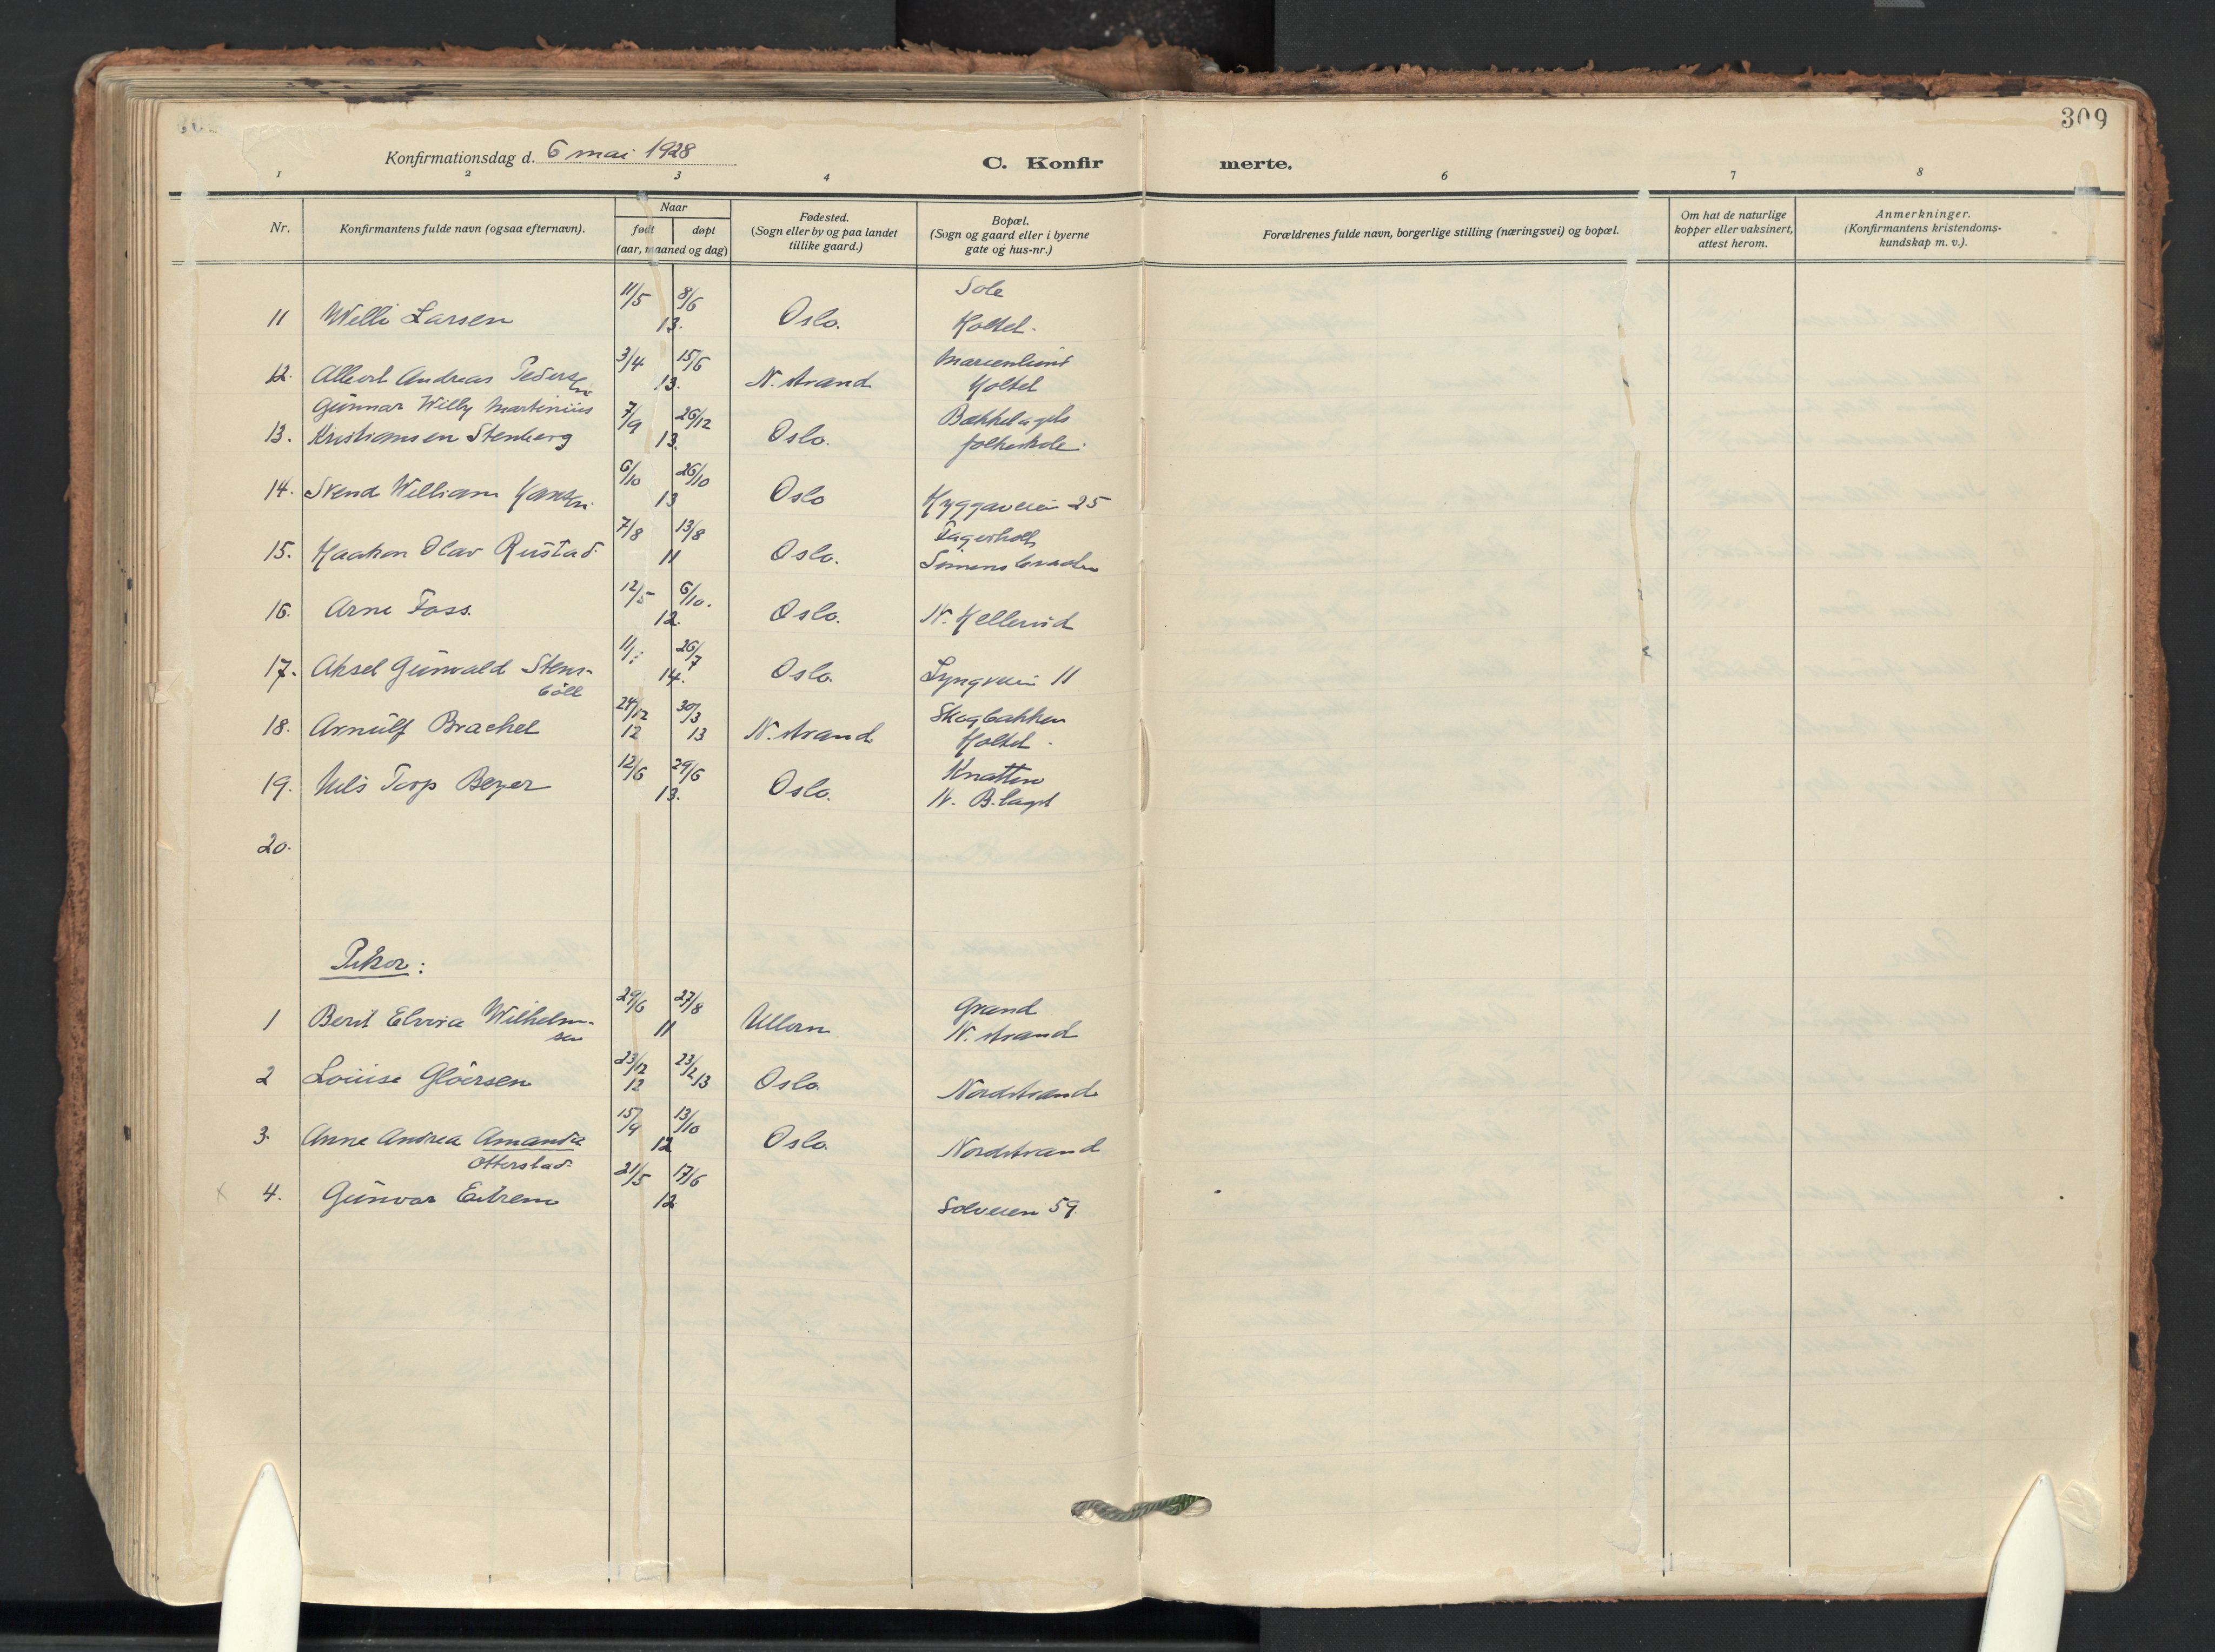 309
Konfirmationsdag d. 6 mai 1928
C. Konfirmerte.
1 2 3 4 6 7 8
Nr.
Konfirmantens fulde navn (ogsaa efternavn).
Naar
født døpt
(aar, maaned og dag)
Fødested.
(Sogn eller by og paa landet
tillike gaard.)
Bopæl.
(Sogn og gaard eller i byerne
gate og hus-nr.)
Forældrenes fulde navn, borgerlige stilling (næringsvei) og bopæl.
Om hat de naturlige
kopper eller vaksinert,
attest herom.
Anmerkninger.
(Konfirmantens kristendoms-
kundskap m. v.).
11/5 8/6 Sole
11 Willi Larsen 13. Oslo. Holtet.
3/4 15/6 Marienlund
12. Albert Andreas Pedersen 13. N. strand Holtet
Gunnar Willy Martinius 7/9 26/12 Bækkelagets
13. Kristiansen Stenberg 13. Oslo. folkeskole.
6/10 26/10
14. Svend William Hansen 13 Oslo Hyggaveien 25
7/8 13/8 Fagerholt
15. Haakon Olav Rustad 11 Oslo. Simensbraaten
12/5 6/10.
16. Arne Foss. 12. Oslo. N. Hellerud
11/ 26/7
17. Aksel Gunvald Stens- 14. Oslo. Lyngveien 11
böll
24/12 30/3 Skogbakken
18. Arnulf Brachel 12 13 N. strand Holtet.
12/6 29/6 Knatten
19. Nils Torp Beyer 13. Oslo. N. B.laget
20.
Piker:
29/6 27/8 Grand
1 Berit Elvira Wilhelm- 11 Ullern N. strand
sen
23/12 23/2
2 Louise Glöersen 12 13 Oslo. Nordstrand
15/9 13/10
3. Anne Andrea Amanda 12 Oslo. Nordstrand
Otterstad.
21/5 17/6
x 4. Gunvor Eitrem 12 Solveien 59.